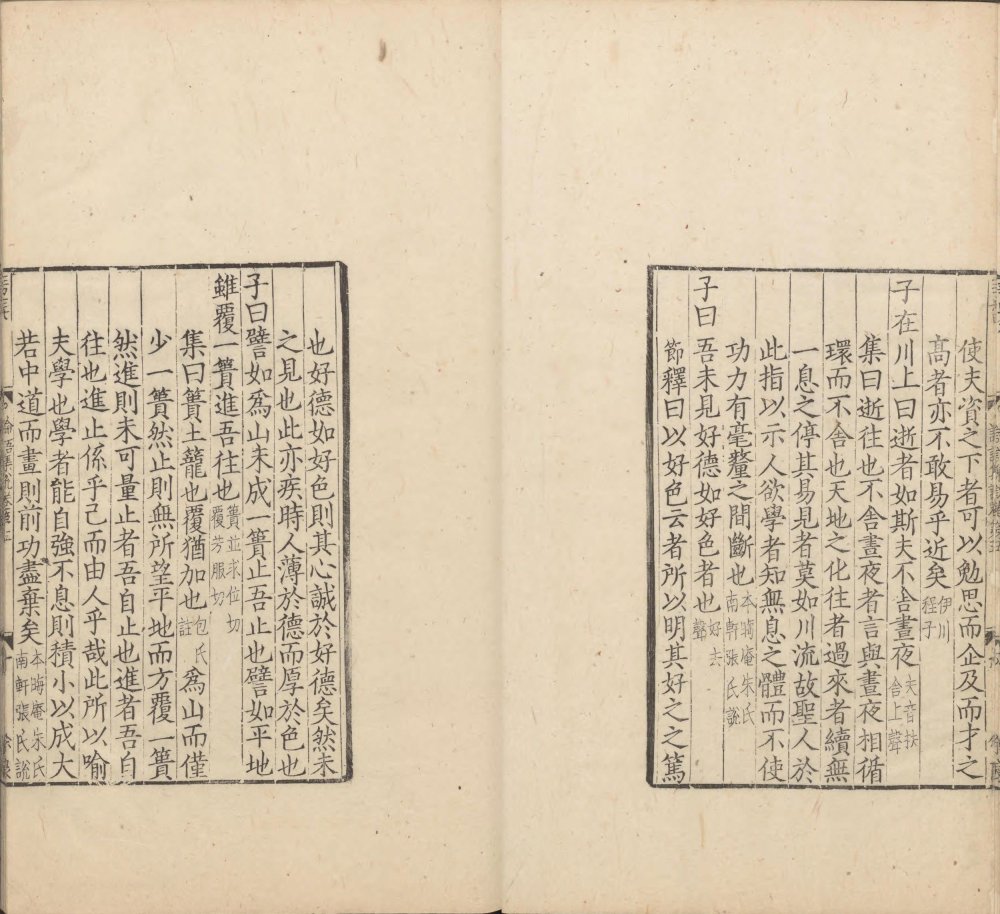 使夫資之下者可以勉思而企及而才之
高者亦不敢易乎近矣伊川程子
子在川上曰逝者如斯夫不舍晝夜夫音扶舍上聲
集曰逝往也不舍晝夜者言與晝夜相循
環而不舍也天地之化往者過來者續無
一息之停其易見者莫如川流故聖人於
此指以示人欲學者知無息之體而不使
功力有毫釐之間斷也本晦庵朱氏南軒張氏說
子曰吾未見好德如好色者也好去聲
節釋曰以好色云者所以明其好之之篤
也好德如好色則其心誠於好德矣然未
之見也此亦疾時人薄於德而厚於色也
子曰譬如爲山未成一簣止吾止也譬如平地
雖覆一簣進吾往也簣並求位切覆芳服切
集曰簣土籠也覆猶加也包氏註爲山而僅
少一簣然止則無所望平地而方覆一簣
然進則未可量止者吾自止也進者吾自
往也進止係乎己而由人乎哉此所以喻
夫學也學者能自強不息則積小以成大
若中道而畫則前功盡棄矣本晦庵朱氏南軒張氏說
論語集說卷第五